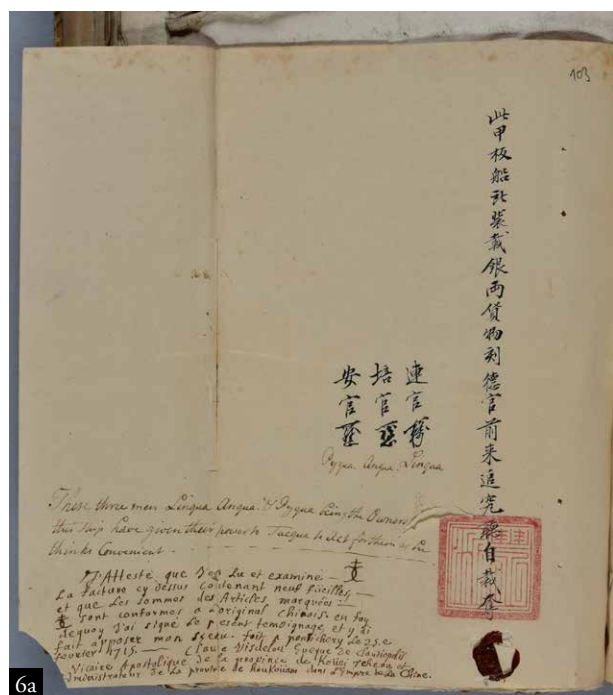 103
此甲板船所裝載銀両貨物刻德官前来追究聽自裁奪
連官
培官
安官
Pyqua. Anqua. Linqua
These three men Linqua Anqua & Pyqua being the Owners
this Ship have given their power to Jacqua to Act for them as he
thinks Convenient
J'Atteste que J'ey Lu et examine
La facture cy dessus Contenant neuf fueilles,
et que Les sommes des Articles marquées
sont conformes a L'original Chinois. en foy
dequoy J'ai signé Le present temoignage et y ai
fait apposer mon sceau. fait a pontichery Le 25.e
fevrier 1715. Claude Visdelou Eveque de Claudiopolis
Vicaire Apostolique de la province de Koùei tcheou et
administrateur de La province de Houkouam dans L'Empire de La Chine.
6a